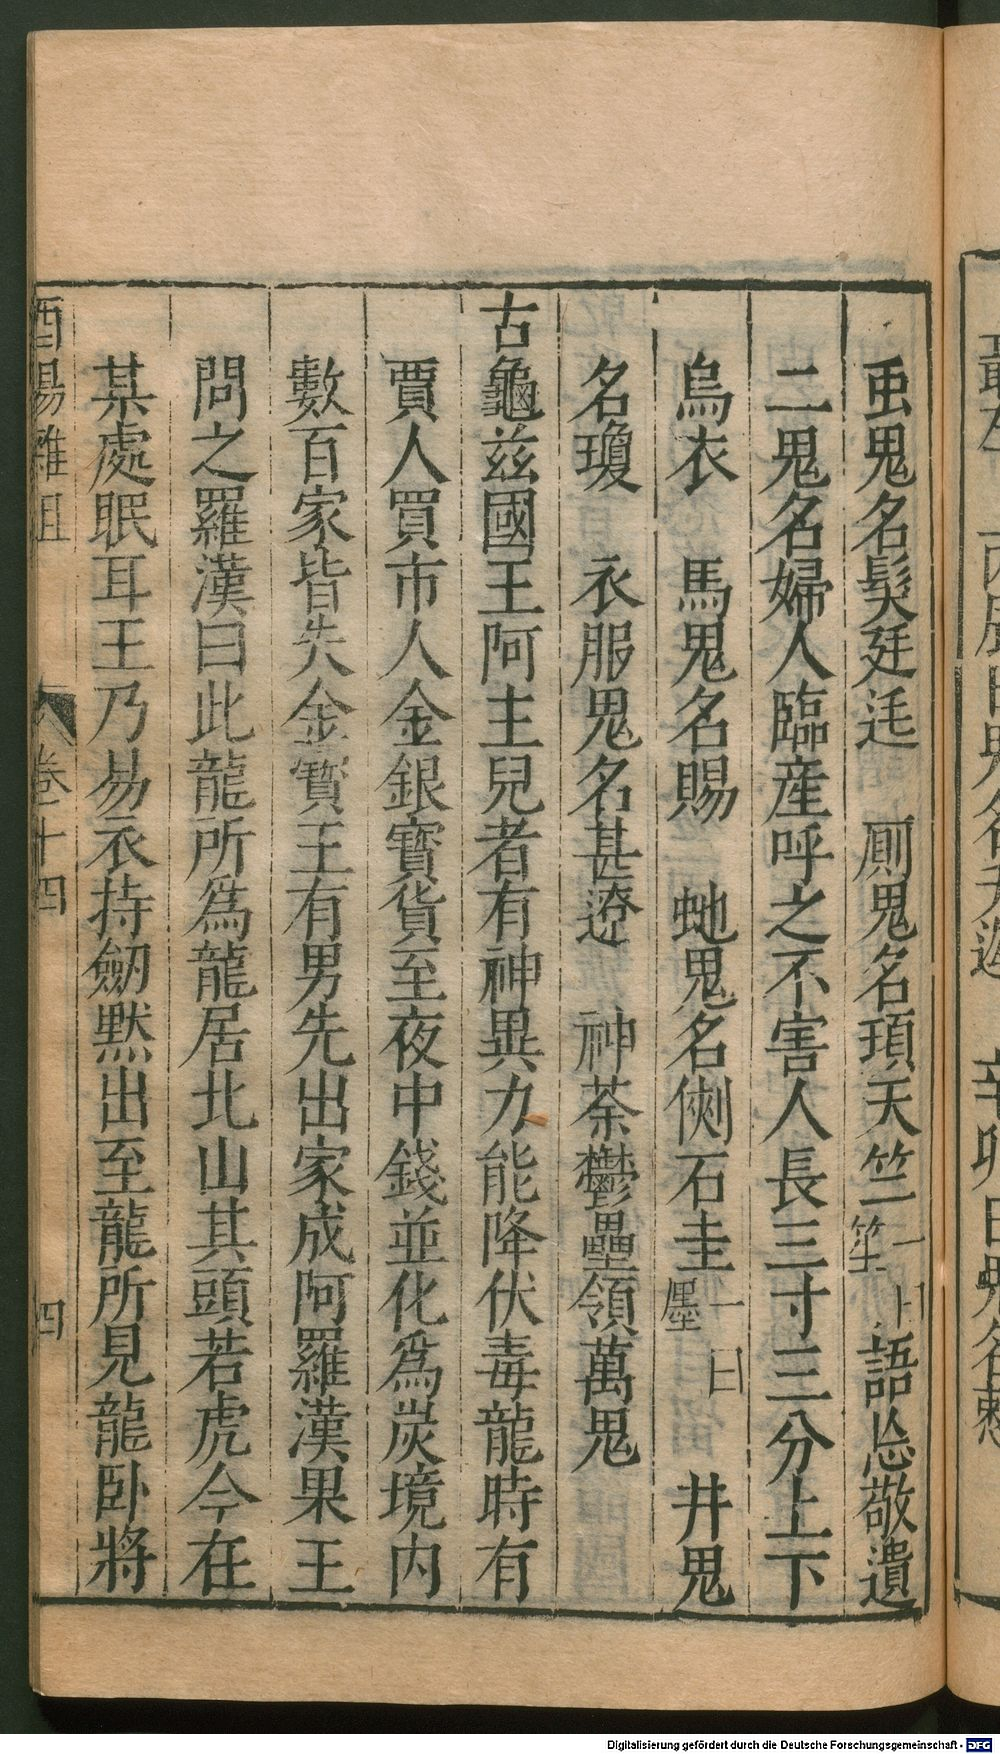 虫鬼名髮廷迋 厠鬼名頊天竺一曰笙語忩敬遺
二鬼名婦人臨産呼之不害人長三寸三分上下
烏衣 馬鬼名賜 虵鬼名側石圭一曰㙻 井鬼
名瓊 衣服鬼名甚遼 神荼鬱壘領萬鬼
古龜兹國王阿主兒者有神異力能降伏毒龍時有
賈人買市人金銀寳貨至夜中錢並化爲炭境内
數百家皆失金寳王有男先出家成阿羅漢果王
問之羅漢曰此龍所爲龍居北山其頭若虎今在
某處眠耳王乃易衣持劒默出至龍所見龍卧將
酉陽雜俎 卷十四 四
Digitalisierung gefördert durch die Deutsche Forschungsgemeinschaft - DFG